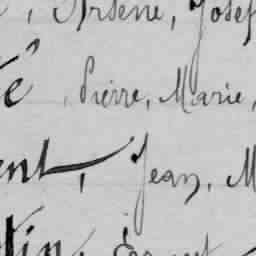 , Arsène, Josef
ê, Pierre, Marie,
ent, Jean, M
tin,